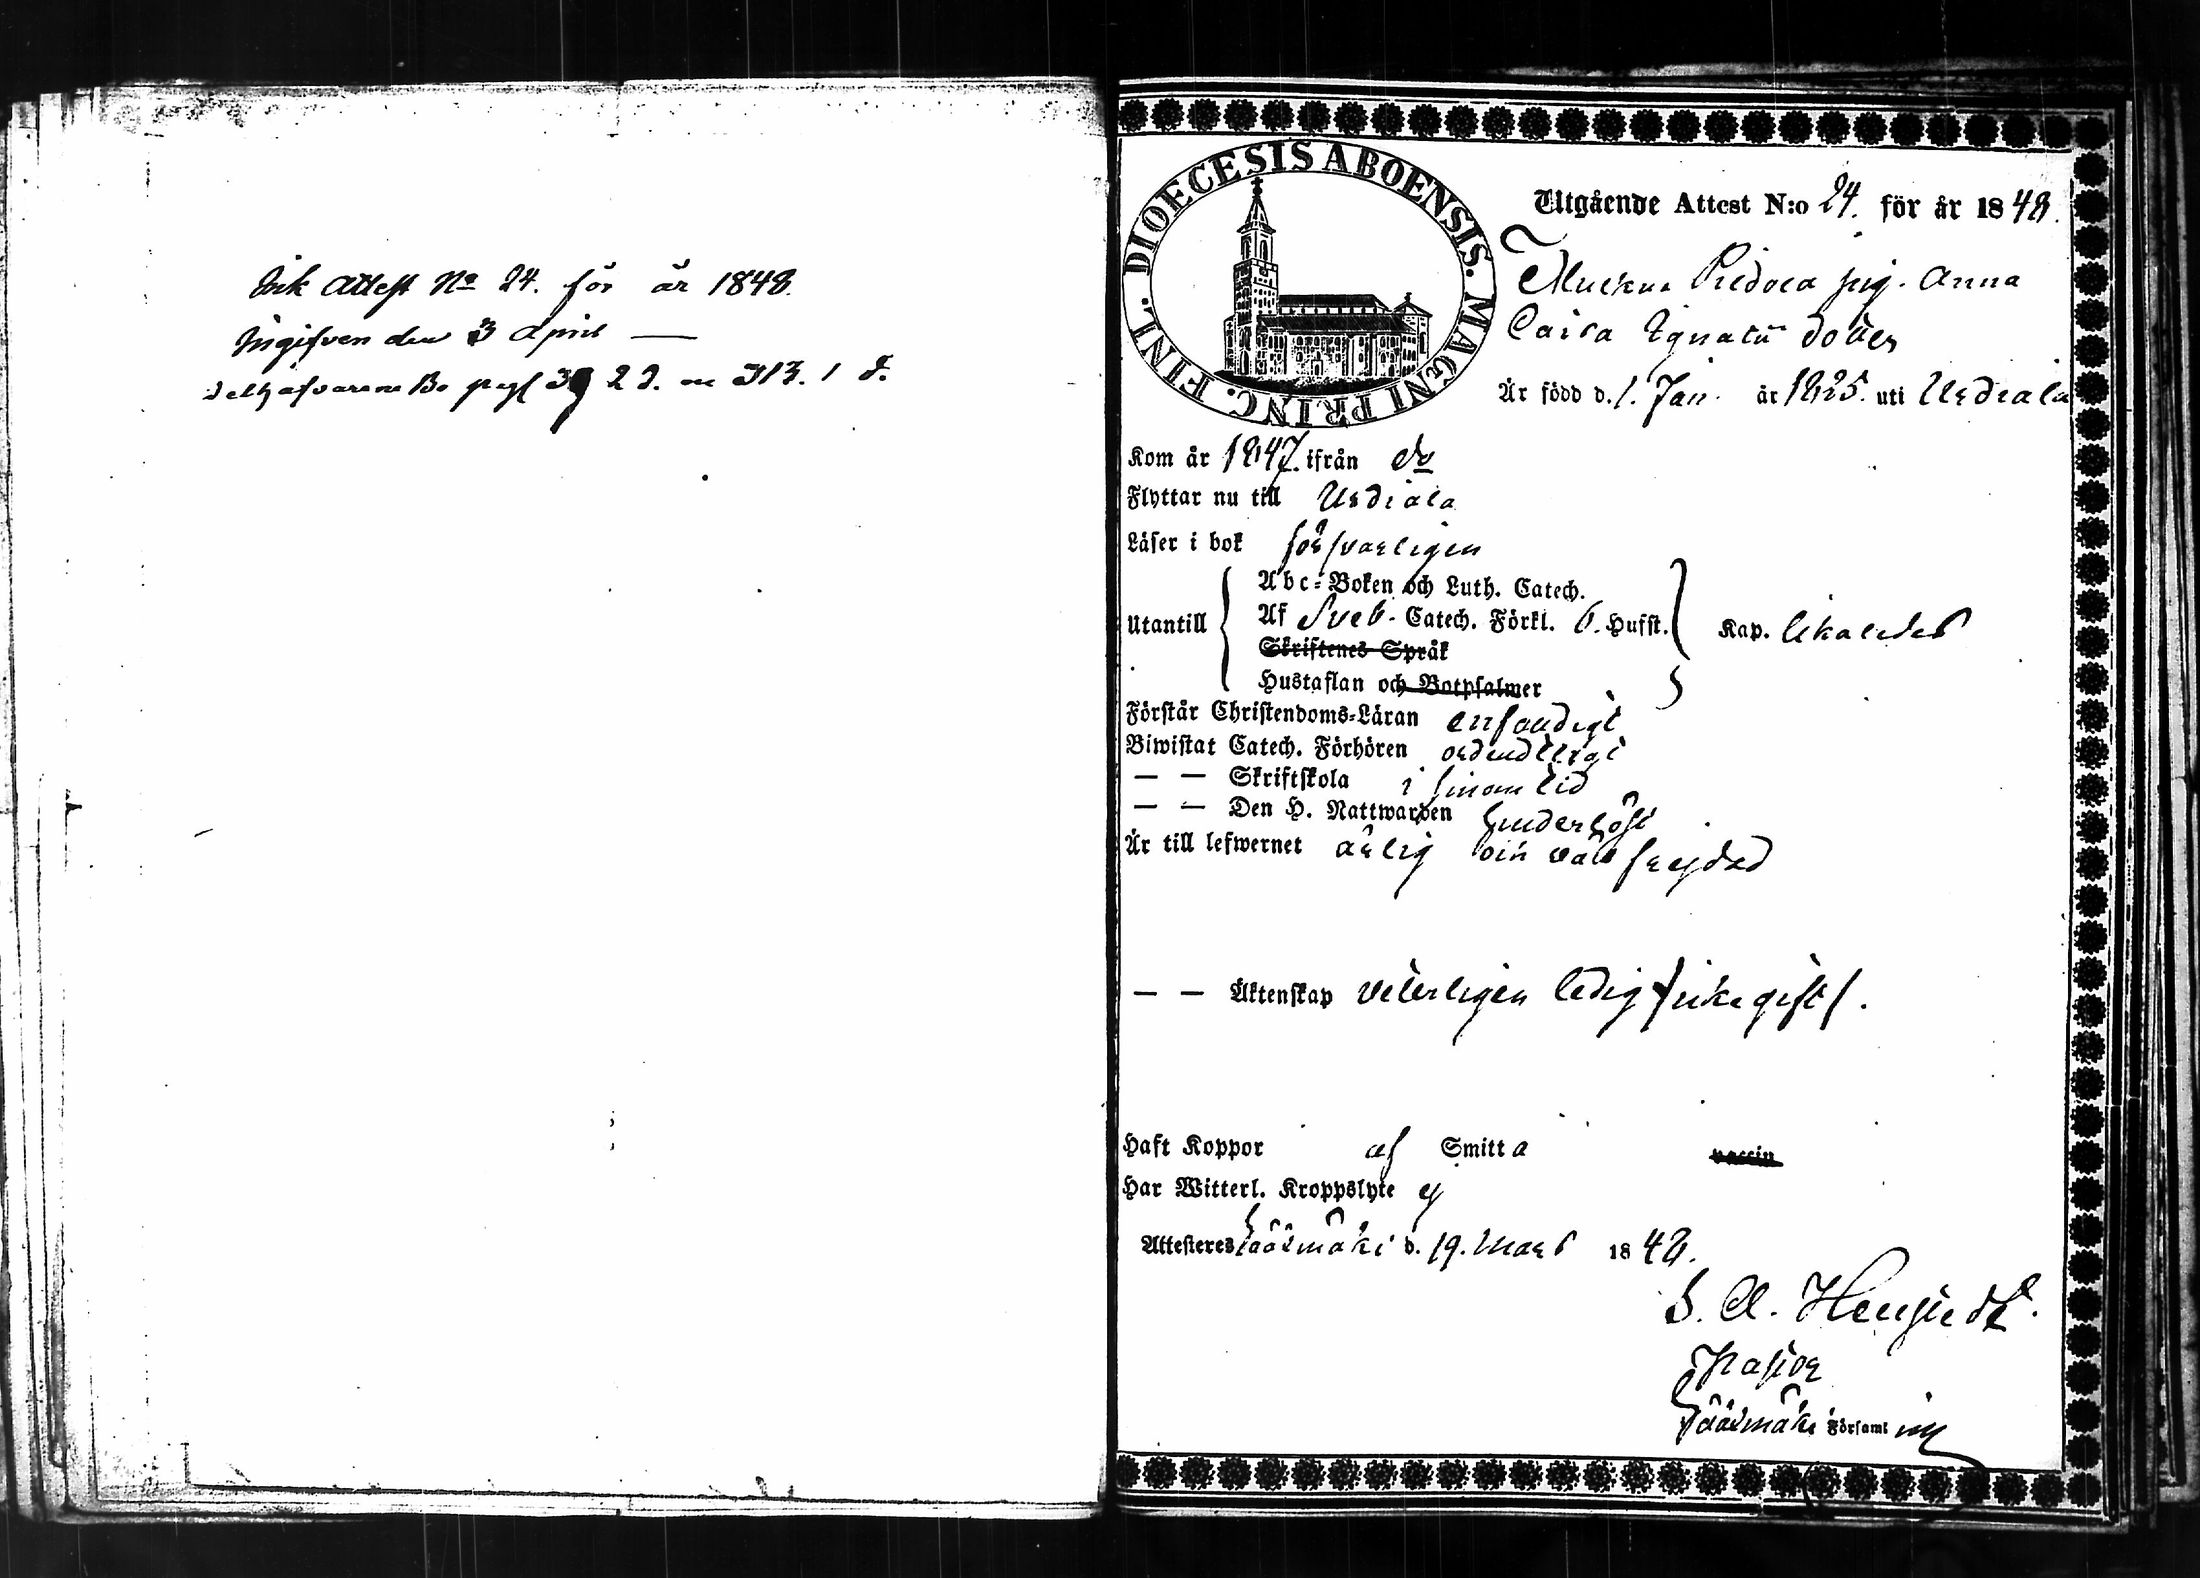 Ink Attest No 24. för år 1848.
Ingifven den 3 April —
313. 1 d.
DIOECESIS ABOENSIS. MAGNI PRINC. FINL.
Utgående Attest N:o 24. för år 1848.
pig. Anna
Caisa Ignatii dotter
Är född d. 1. Jan. år 1825. uti Urdiala
Kom år 1847. ifrån do
Flyttar nu till Urdiala
Läser i bok försvarligen
Utantill
Abc-Boken och Luth. Catech.
Af Sveb. Catech. Förkl. 6. Hufst. Kap. likaledes
Skriftenes Språk
Hustaflan och Botpsalmer
Förstår Christendoms-Läran enfaldigt
Biwistat Catech. Förhören ordentligt
— — Skriftskola i sinom tid
— — Den H. Nattwarden sinderhöst
Är till lefwernet ärlig och väl frejdad
— — Äktenskap veterligen ledig / icke gift /.
Haft Koppor af Smitta vaccin
Har Witterl. Kroppslyte ej
Attesteras Sääxmäki d. 19. Mars 1848.
Pastor
Sääxmäki Församl